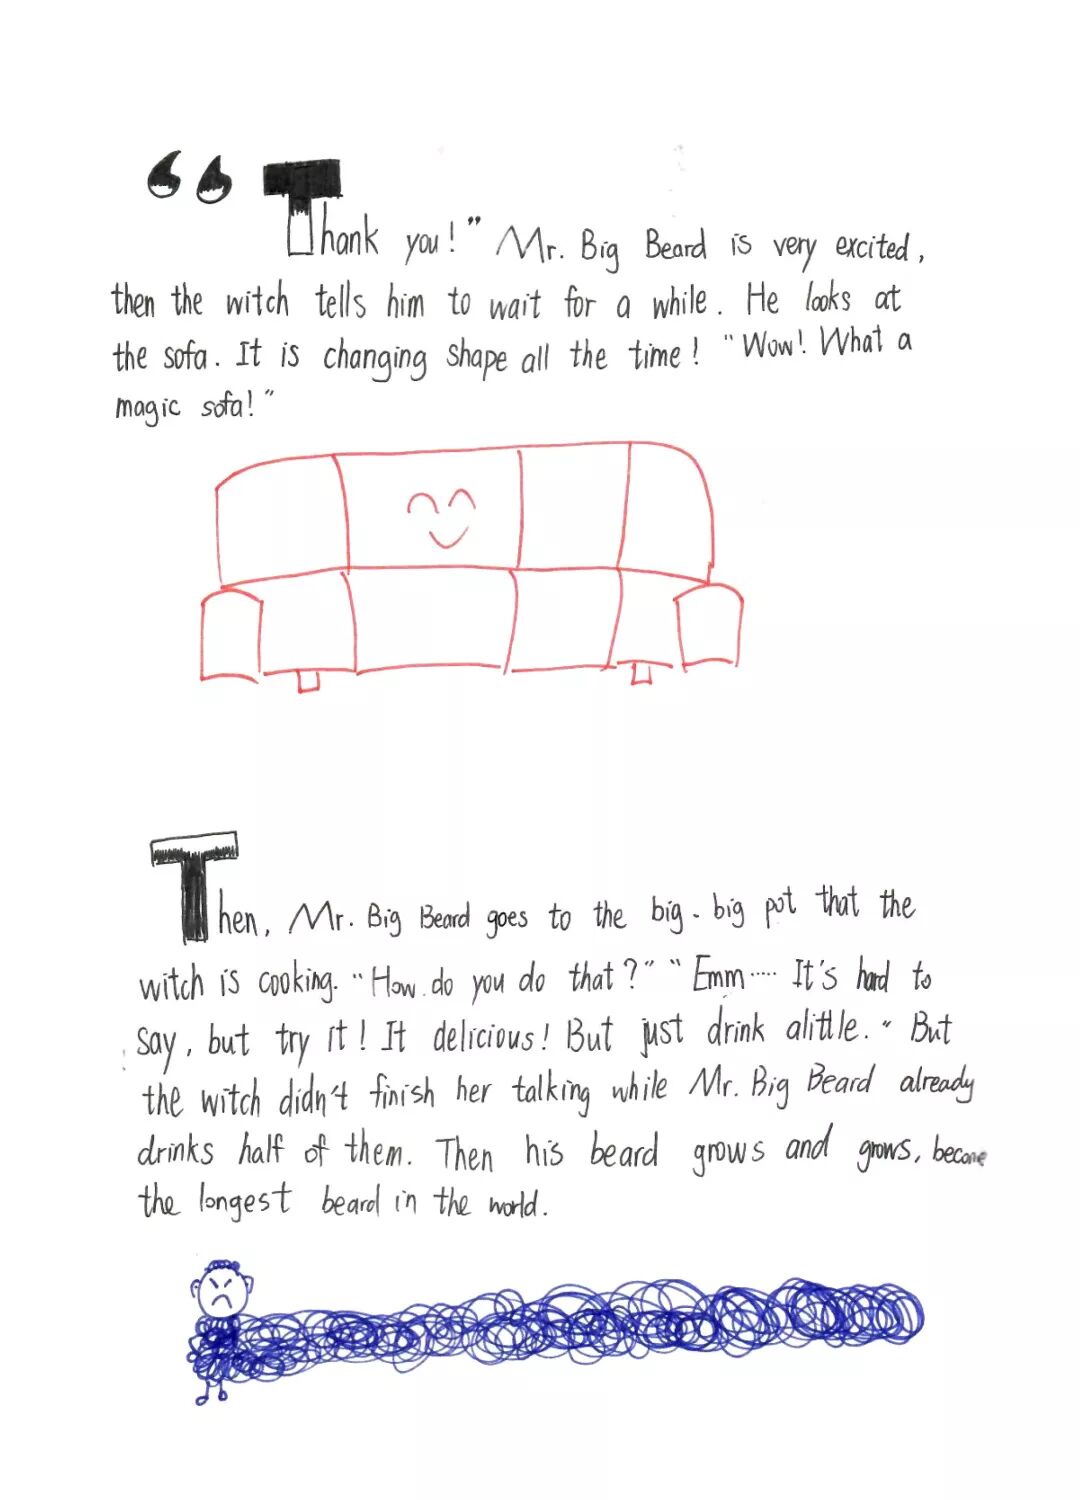 “Thank you!” Mr. Big Beard is very excited,
then the witch tells him to wait for a while. He looks at
the sofa. It is changing shape all the time! “Wow! What a
magic sofa!”
Then, Mr. Big Beard goes to the big-big pot that the
witch is cooking. “How do you do that?” “Emm..... It's hard to
say, but try it! It delicious! But just drink alittle.” But
the witch didn't finish her talking while Mr. Big Beard already
drinks half of them. Then his beard grows and grows, become
the longest beard in the world.